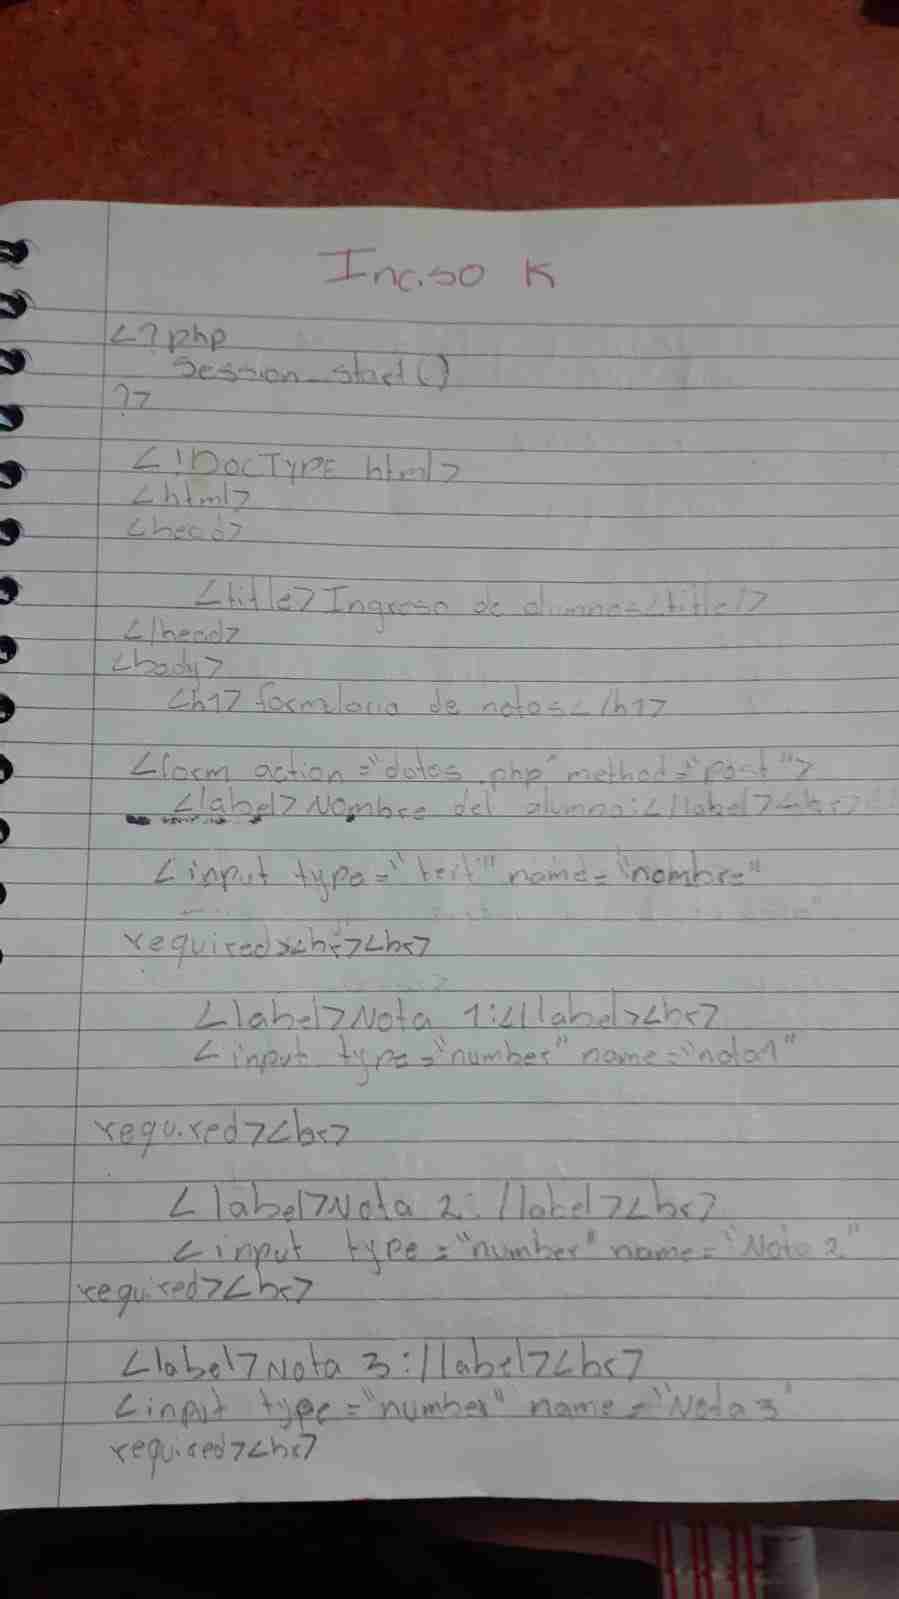 Inciso K
<?php
Session_start()
?>
<!DOCTYPE html>
<html>
<head>
<title>Ingreso de alumnos</title>
</head>
<body>
<h1> formulario de notas</h1>
<form action="datos.php" method="post">
<label>Nombre del alumno:</label><br>
<input type="text" name="nombre"
required><br><br>
<label>Nota 1:</label><br>
<input type="number" name="nota1"
required><br>
<label>Nota 2:/label><br>
<input type="number" name="Nota 2"
required><br>
<label>Nota 3:/label><br>
<input type="number" name="Nota 3"
required><br>